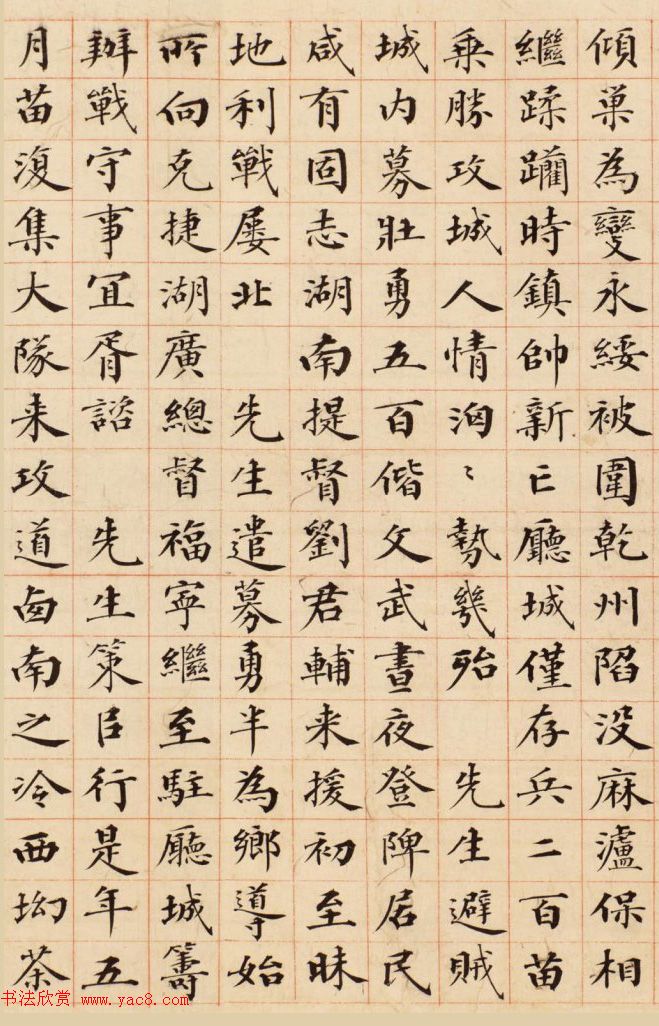 傾巢為變永綏被圍乾州陷没麻瀘保相
繼蹂躪時鎮帥新亡廳城僅存兵二百苗
乗勝攻城人情洶〻勢幾殆 先生避賊
城内募壯勇五百偕文武晝夜登陴居民
咸有固志湖南提督劉君輔来援初至昧
地利戰屢北 先生遣募勇半為鄉導始
所向克捷湖廣總督福寧繼至駐廳城籌
辦戰守事宜胥諮 先生策㠯行是年五
月苗復集大隊来攻道西南之冷西坳茶
书法欣赏 www.yac8.com